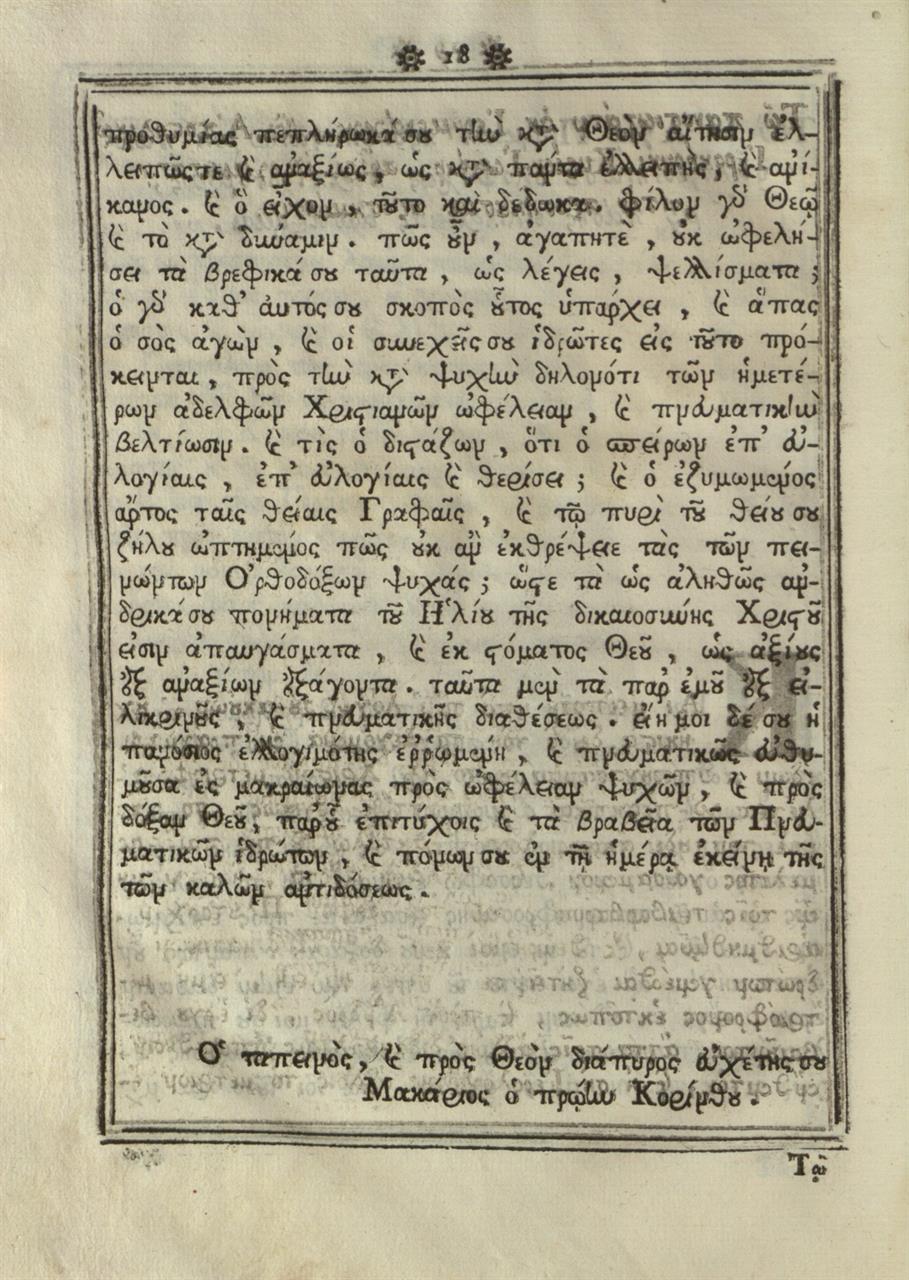 18
προθυμίας πεπλήρωκά σου τὴν κτ̀ Θεὸν αἴτησιν ἐλ-
λειπῶς τε ϗ̀ ἀναξίως, ὡς κτ̀ πάντα ἐλλειπὴς, ϗ̀ ἀνί-
κανος. ϗ̀ ὃ εἶχον, τοῦτο καὶ δέδωκα. φίλον γὰρ Θεῷ
ϗ̀ τὸ κτ̀ δύναμιν. πῶς οὖν, ἀγαπητὲ, οὐκ ὠφελή-
σει τὰ βρεφικά σου ταῦτα, ὡς λέγεις, ψελλίσματα;
ὁ γὰρ καθ' αὑτό σου σκοπὸς οὗτος ὑπάρχει, ϗ̀ ἅπας
ὁ σὸς ἀγὼν, ϗ̀ οἱ συνεχεῖς σου ἱδρῶτες εἰς τοῦτο πρό-
κεινται, πρὸς τὴν κτ̀ ψυχὴν δηλονότι τῶν ἡμετέ-
ρων ἀδελφῶν Χριστιανῶν ὠφέλειαν, ϗ̀ πνευματικὴν
βελτίωσιν. ϗ̀ τίς ὁ διστάζων, ὅτι ὁ σπείρων ἐπ' εὐ-
λογίαις, ἐπ' εὐλογίαις ϗ̀ θερίσει; ϗ̀ ὁ ἐζυμωμένος
ἄρτος ταῖς θείαις Γραφαῖς, ϗ̀ τῷ πυρὶ τοῦ θείου σου
ζήλου ὠπτημένος πῶς οὐκ ἂν ἐκθρέψειε τὰς τῶν πει-
νώντων Ὀρθοδόξων ψυχάς; ὥστε τὰ ὡς ἀληθῶς ἀν-
δρικά σου πονήματα τοῦ Ἡλίου τῆς δικαιοσύνης Χριστοῦ
εἰσιν ἀπαυγάσματα, ϗ̀ ἐκ στόματος Θεοῦ, ὡς ἀξίους
ἐξ ἀναξίων ἐξάγοντα. ταῦτα μὲν τὰ παρ' ἐμοῦ ἐξ εἰ-
λικρινοῦς, ϗ̀ πνευματικῆς διαθέσεως. εἴη μοι δέ σου ἡ
πανόσιος ἐλλογιμότης ἐῤῥωμένη, ϗ̀ πνευματικῶς εὐθυ-
μοῦσα ἐς μακραίωνας πρὸς ὠφέλειαν ψυχῶν, ϗ̀ πρὸς
δόξαν Θεοῦ, παρ' οὗ ἐπιτύχοις ϗ̀ τὰ βραβεῖα τῶν Πνευ-
ματικῶν ἱδρώτων, ϗ̀ πόνων σου ἐν τῇ ἡμέρᾳ ἐκείνῃ τῆς
τῶν καλῶν ἀντιδόσεως.
Ὁ ταπεινὸς, ϗ̀ πρὸς Θεὸν διάπυρος εὐχέτης σου
Μακάριος ὁ πρῴην Κορίνθου.
Τῷ